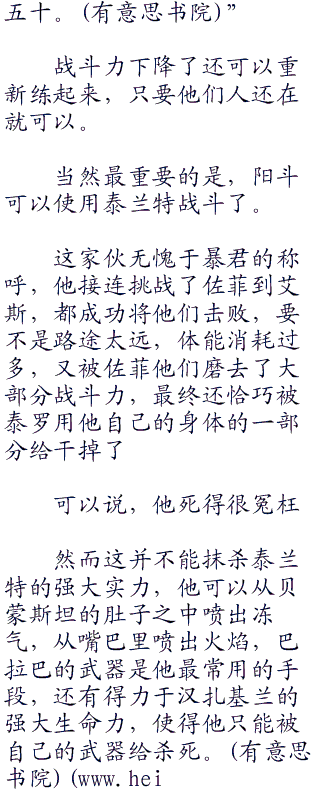 五十。(有意思书院)”
战斗力下降了还可以重
新练起来，只要他们人还在
就可以。
当然最重要的是，阳斗
可以使用泰兰特战斗了。
这家伙无愧于暴君的称
呼，他接连挑战了佐菲到艾
斯，都成功将他们击败，要
不是路途太远，体能消耗过
多，又被佐菲他们磨去了大
部分战斗力，最终还恰巧被
泰罗用他自己的身体的一部
分给干掉了
可以说，他死得很冤枉
然而这并不能抹杀泰兰
特的强大实力，他可以从贝
蒙斯坦的肚子之中喷出冻
气，从嘴巴里喷出火焰，巴
拉巴的武器是他最常用的手
段，还有得力于汉扎基兰的
强大生命力，使得他只能被
自己的武器给杀死。(有意思
书院)(www.hei